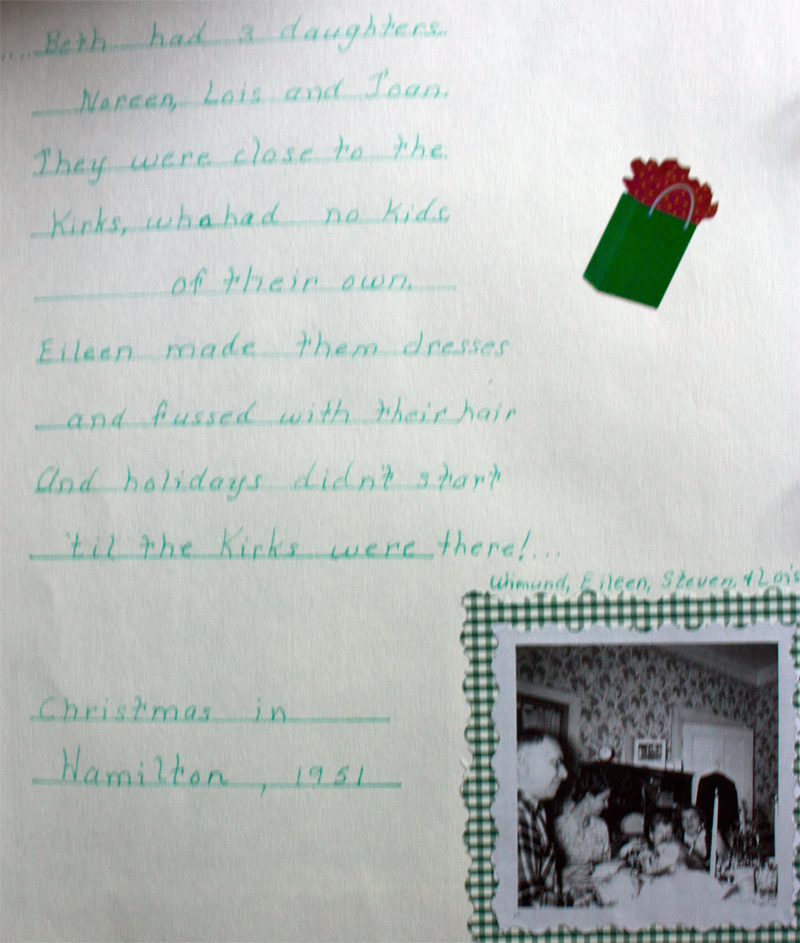 ....Beth had 3 daughters.
Noreen, Lois and Joan.
They were close to the
Kirks, who had no kids
of their own.
Eileen made them dresses
and fussed with their hair
And holidays didn't start
'til the Kirks were there!...
Eileen, Steven, & Lois
Christmas in
Hamilton, 1951